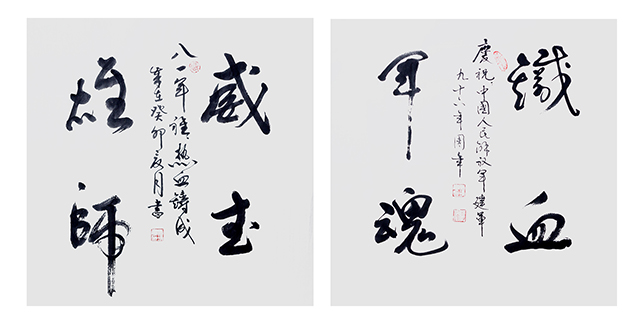 鐵血
慶祝中國人民解放軍建軍
九十六年周年
軍魂
威武
八一軍熱血鑄成
歲在癸卯夏月書
雄師